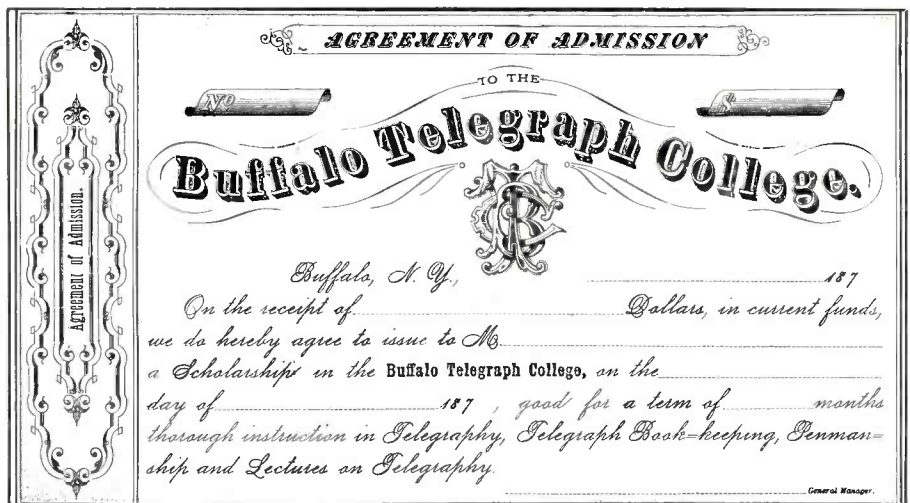 AGREEMENT OF ADMISSION
TO THE
No
$
Buffalo Telegraph College.
BTC
Agreement of Admission.
Buffalo, N. Y., 187
On the receipt of Dollars, in current funds,
we do hereby agree to issue to M
a Scholarship in the Buffalo Telegraph College, on the
day of 187 , good for a term of months
thorough instruction in Telegraphy, Telegraph Book=keeping, Penman=
ship and Lectures on Telegraphy.
General Manager.